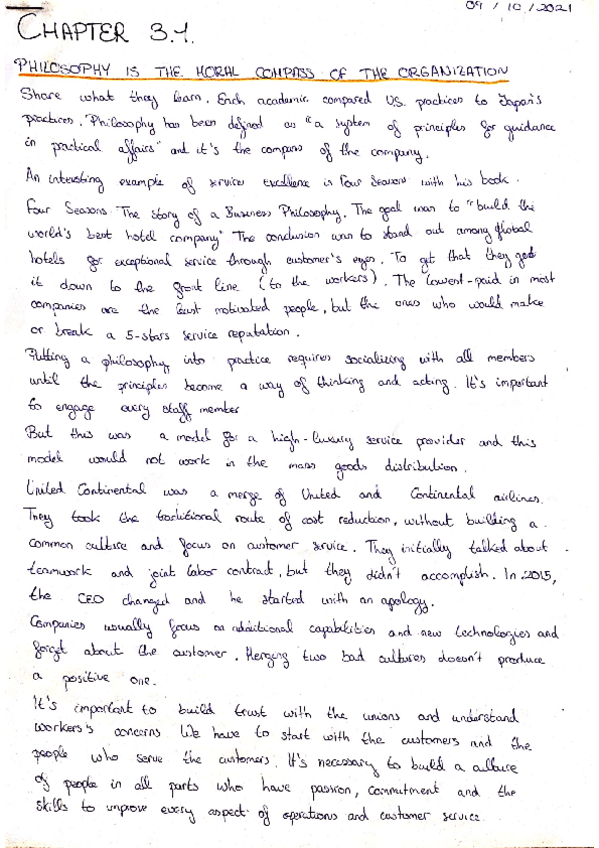 09/10/2021
CHAPTER 3.1.
PHILOSOPHY IS THE MORAL COMPASS OF THE ORGANIZATION
Share what they learn. Each academic compared US. practices to Japan's
practices. "Philosophy has been defined as "a system of principles for guidance
in practical affairs" and it's the compass of the company.
An interesting example of service excellence is Four Seasons with his book.
Four Seasons: The story of a Business Philosophy. The goal was to "build the
world's best hotel company" The conclusion was to stand out among global
hotels for exceptional service through customer's eyes. To get that they got
it down to the front line (to the workers). The lowest-paid in most
companies are the least motivated people, but the ones who would make
or break a 5-stars service reputation.
Putting a philosophy into practice requires socializing with all members
until the principles become a way of thinking and acting. It's important
to engage every staff member
But this was a model for a high-luxury service provider and this
model would not work in the mass goods distribution.
United Continental was a merge of United and Continental airlines.
They took the traditional route of cost reduction, without building a
common culture and focus on customer service. They initially talked about
teamwork and joint labor contract, but they didn't accomplish. In 2015,
the CEO changed and he started with an apology.
Companies usually focus on additional capabilities and new technologies and
forget about the customer. Merging two bad cultures doesn't produce
a positive one.
It's important to build trust with the unions and understand
workers's concerns We have to start with the customers and the
people who serve the customers. It's necessary to build a culture
of people in all parts who have passion, commitment and the
skills to improve every aspect of operations and customer service.